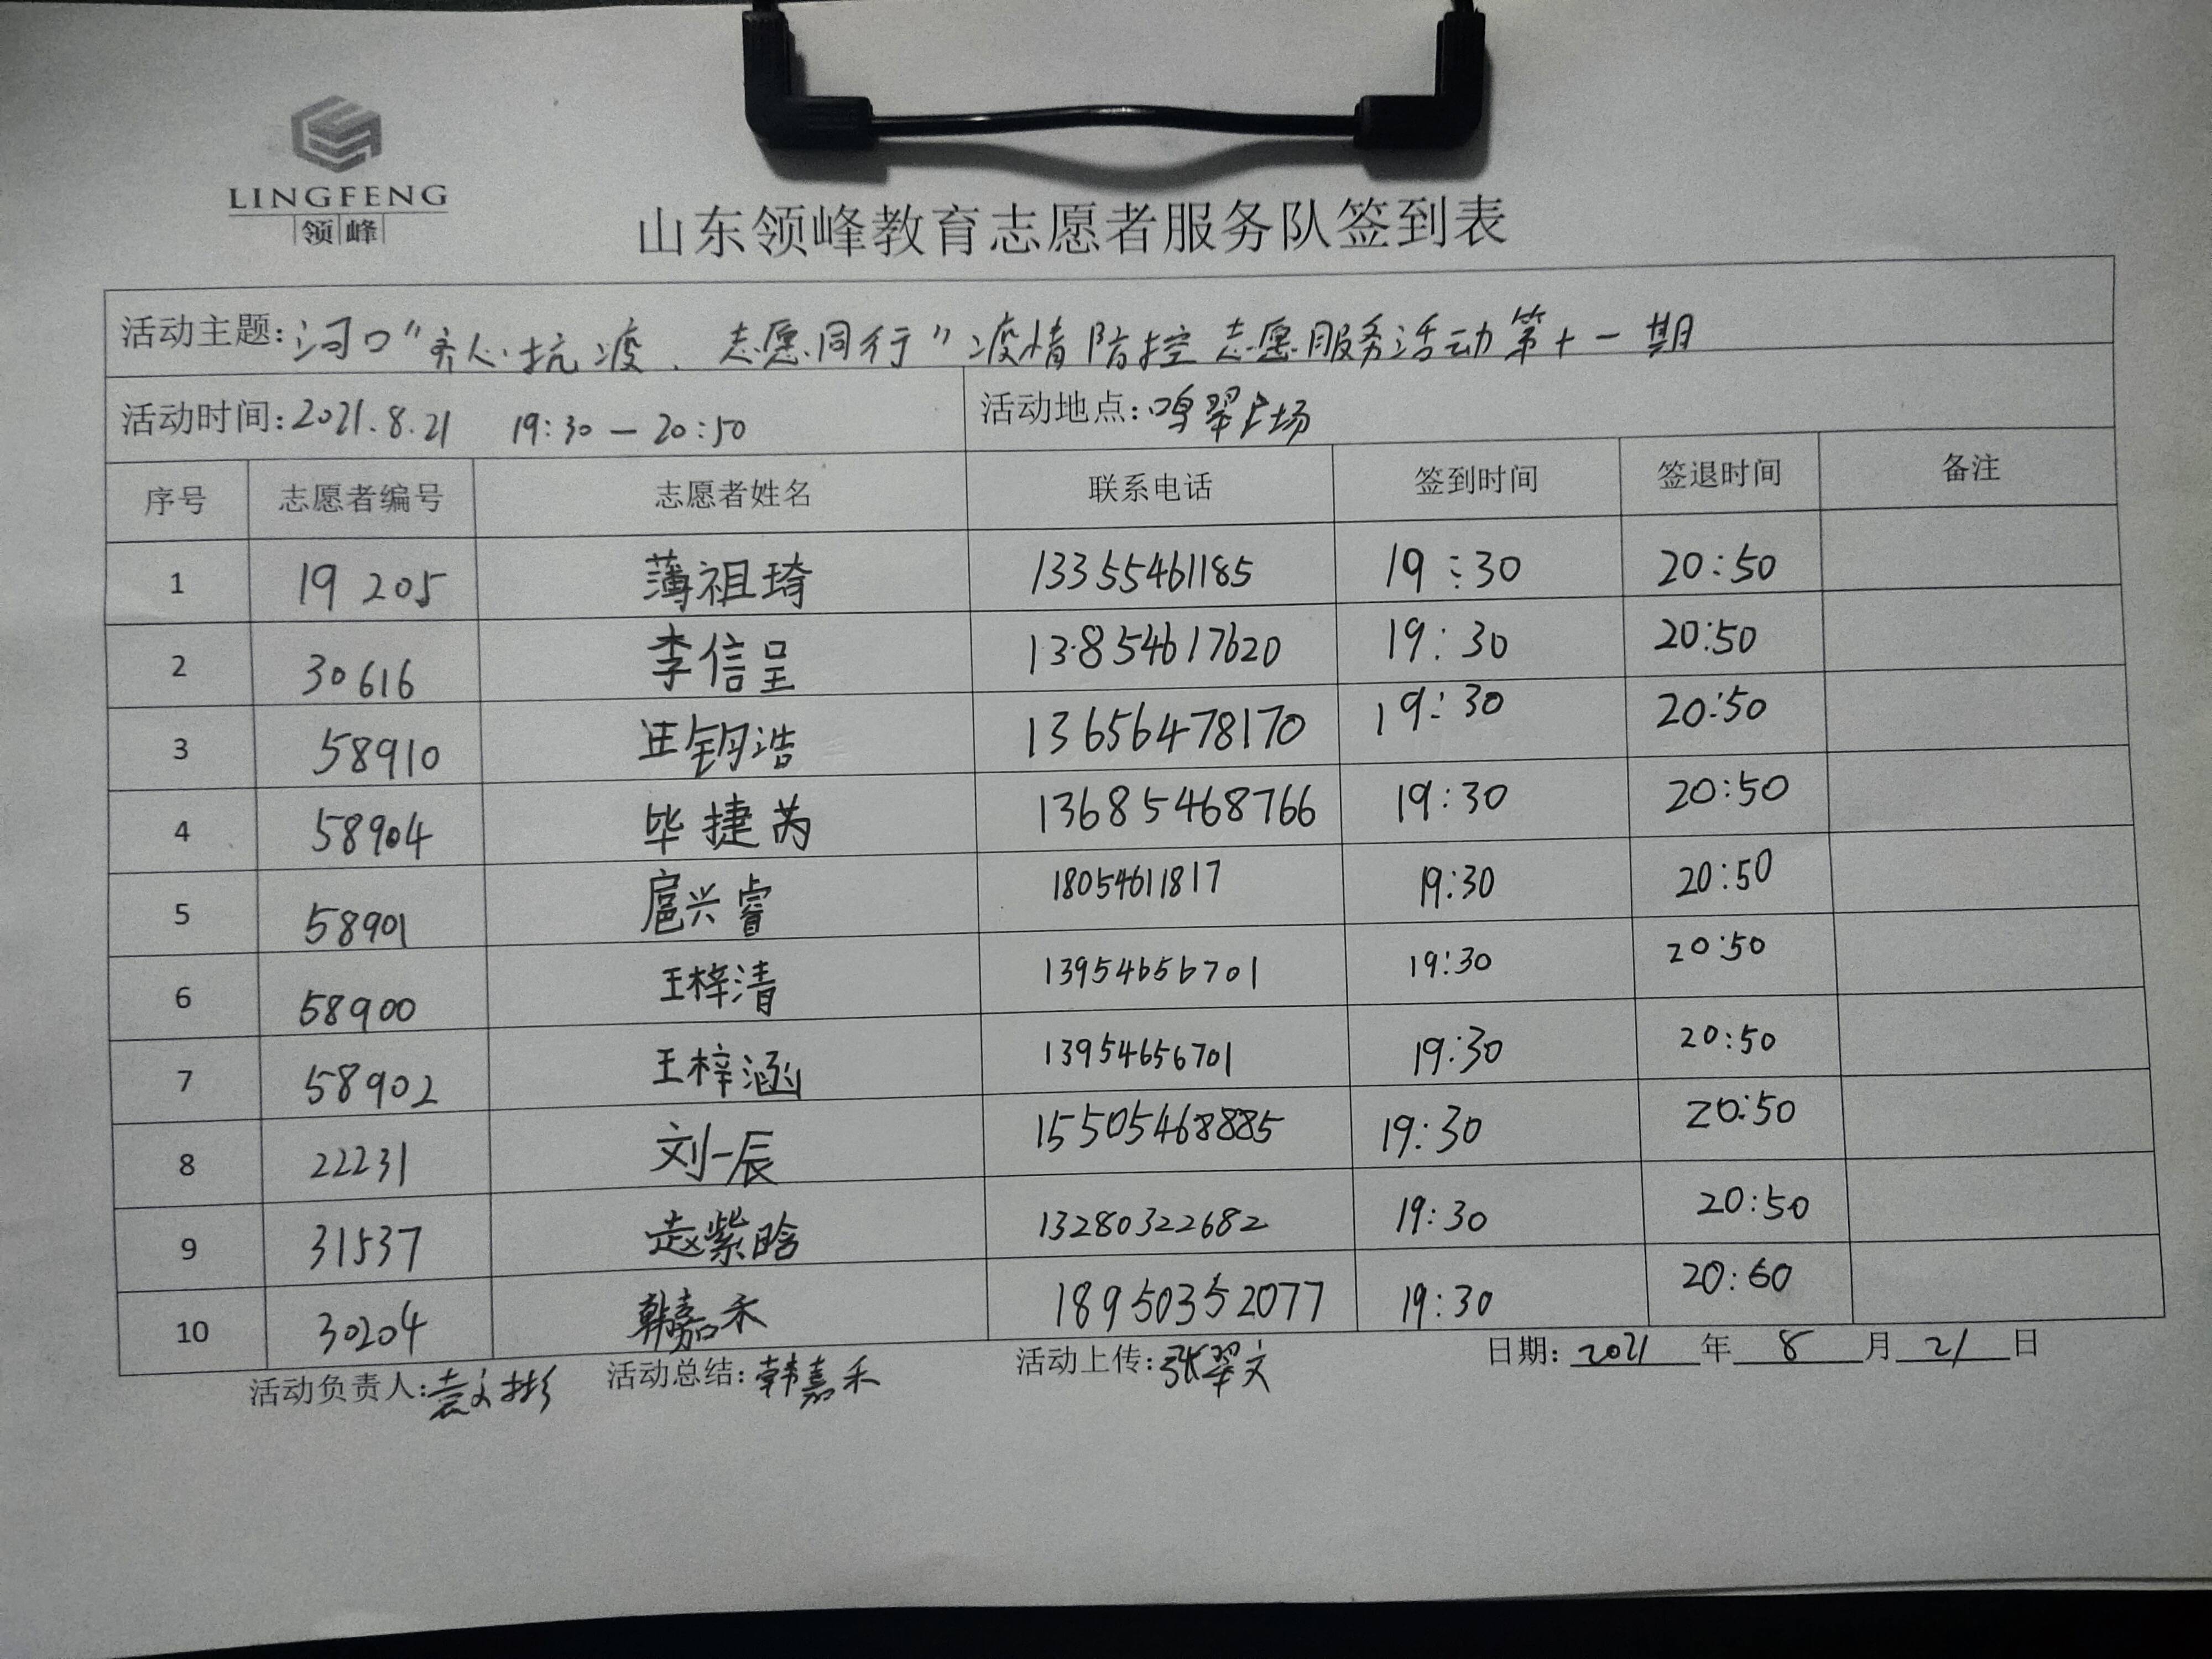 LINGFENG
领峰
山东领峰教育志愿者服务队签到表
活动主题:河口"齐心抗疫、志愿同行"疫情防控志愿服务活动第十一期
活动时间:2021.8.21 19:30—20:50 活动地点:鸣翠广场
序号 志愿者编号 志愿者姓名 联系电话 签到时间 签退时间 备注
1 19205 薄祖琦 13355461185 19:30 20:50
2 30616 李信呈 13854617620 19:30 20:50
3 58910 王钥浩 13656478170 19:30 20:50
4 58904 毕捷芮 13685468766 19:30 20:50
5 58901 扈兴睿 18054611817 19:30 20:50
6 58900 王梓清 13954656701 19:30 20:50
7 58902 王梓涵 13954656701 19:30 20:50
8 22231 刘一辰 15505468885 19:30 20:50
9 31537 赵紫晗 13280322682 19:30 20:50
10 30204 韩嘉禾 18950352077 19:30 20:60
活动负责人:袁文彬 活动总结:韩嘉禾 活动上传:张翠文 日期:2021年8月21日